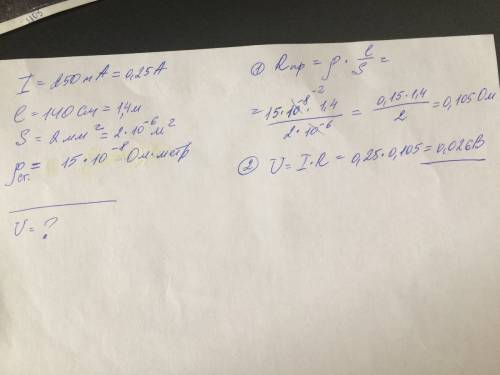 I = 250 mA = 0,25 A
l = 140 см = 1,4 м
S = 2 мм² = 2·10⁻⁶ м²
ρст. = 15·10⁻⁸ Ом·метр
U = ?
① Rпр = ρ · l/S =
= 15·10⁻⁸ ⁻² · 1,4 / 2·10⁻⁶ = 0,15·1,4 / 2 = 0,105 Ом
② U = I·R = 0,25·0,105 = 0,026 В